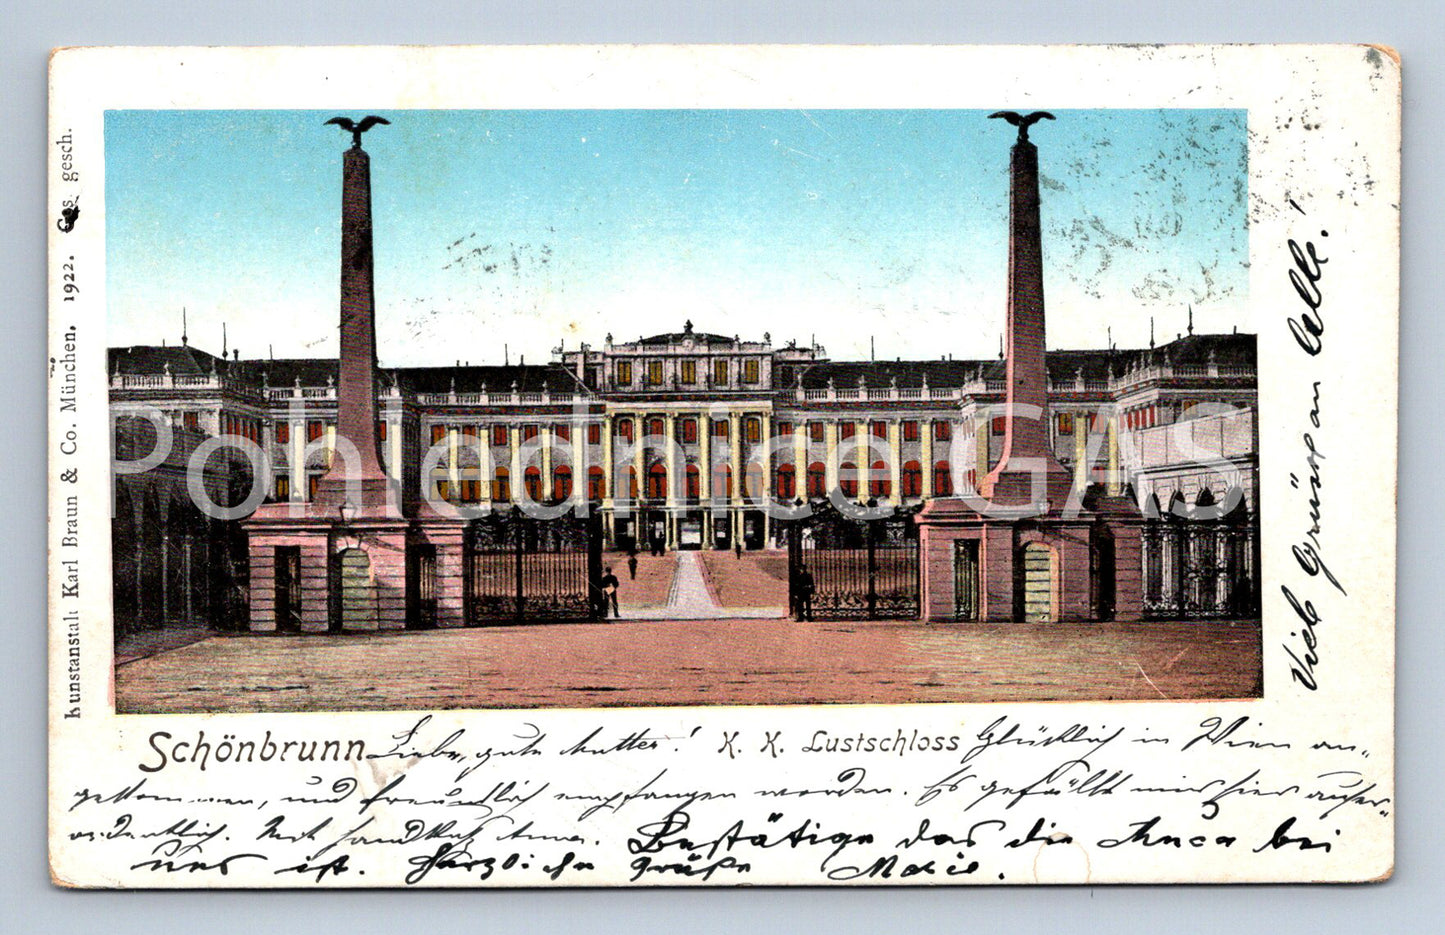 Kunstanstalt Karl Braun & Co. München. 1922. Ges. gesch.
Pohlednice GAS
Schönbrunn Liebe, gute Mutter! K. K. Lustschloss Glücklich in Wien an-
gekommen, und freundlich empfangen worden. Es gefällt mir hier außer-
ordentlich. Mit Handkuß Anna. Bestätige das die Anna bei
uns ist. Herzliche Grüße Marie.
Viel Grüße an Alle!